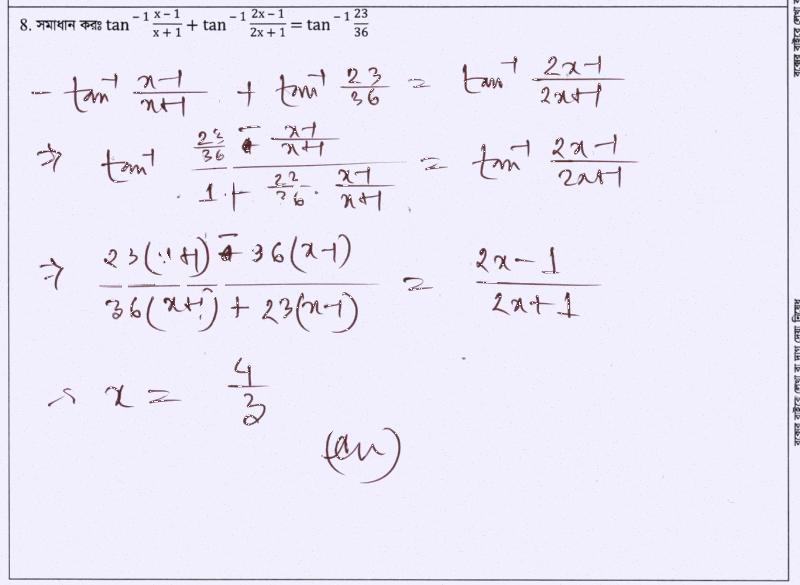 8. সমাধান করঃ tan⁻¹ (x−1)/(x+1) + tan⁻¹ (2x−1)/(2x+1) = tan⁻¹ 23/36
− tan⁻¹ (x−1)/(x+1) + tan⁻¹ 23/36 = tan⁻¹ (2x−1)/(2x+1)
⇒ tan⁻¹ (23/36 − (x−1)/(x+1))/(1 + 23/36 · (x−1)/(x+1)) = tan⁻¹ (2x−1)/(2x+1)
⇒ (23(x+1) − 36(x−1))/(36(x+1) + 23(x−1)) = (2x−1)/(2x+1)
∴ x = 4/3
(an)